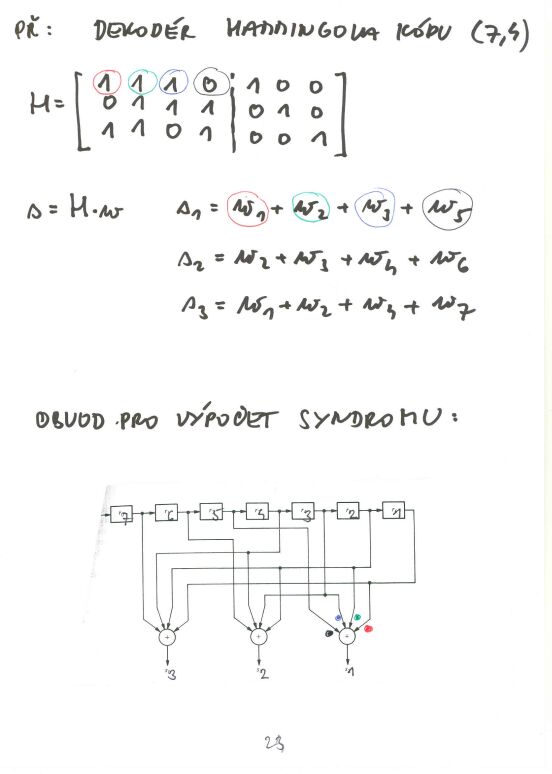 PŘ: DEKODÉR HAMMINGOVA KÓDU (7,4)
H = [ 1 1 1 0 | 1 0 0
0 1 1 1 | 0 1 0
1 1 0 1 | 0 0 1 ]
s = H·w s1 = w1 + w2 + w3 + w5
s2 = w2 + w3 + w4 + w6
s3 = w1 + w2 + w4 + w7
OBVOD PRO VÝPOČET SYNDROMU:
7 6 5 4 3 2 1
+ + +
3 2 1